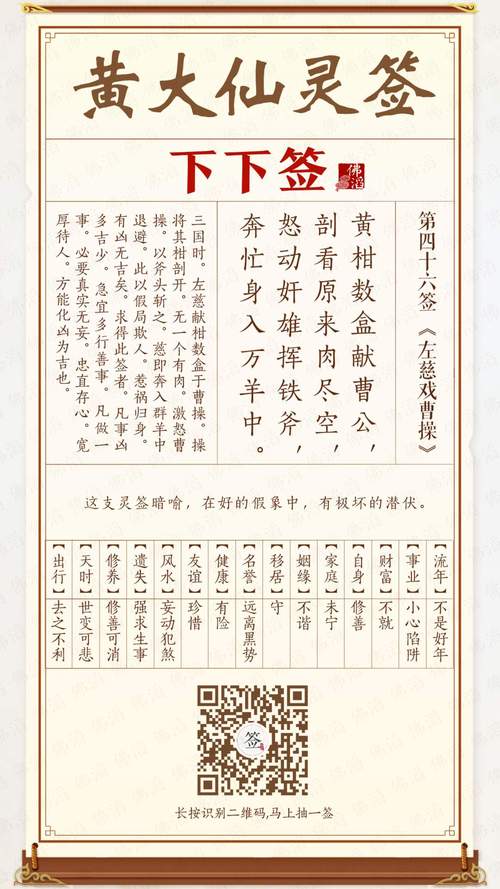 黄大仙灵签
下下签
佛滔
第四十六签《左慈戏曹操》
黄柑数盒献曹公，
剖看原来肉尽空，
怒动奸雄挥铁斧，
奔忙身入万羊中。
三国时。左慈献柑数盒于曹操。操
将其柑剖开。无一个有肉。激怒曹
操。以斧头斩之。慈即奔入群羊中
退避。此以假局欺人。惹祸归身。
有凶无吉矣。求得此签者。凡事凶
多吉少。急宜多行善事。凡做一
事。必要真实无妄。忠直存心。宽
厚待人。方能化凶为吉也。
这支灵签暗喻，在好的假象中，有极坏的潜伏。
【流年】不是好年
【事业】小心陷阱
【财富】不就
【自身】修善
【家庭】未宁
【姻缘】不谐
【移居】守
【名誉】远离黑势
【健康】有险
【友谊】珍惜
【风水】妄动犯煞
【遗失】强求生事
【修养】修善可消
【天时】世变可悲
【出行】去之不利
签
长按识别二维码,马上抽一签